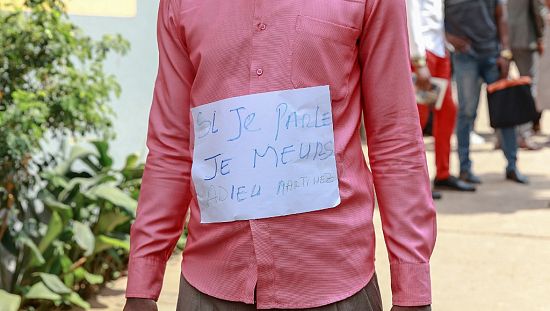 SI Je PARLE
JE MEURS
ADIEU MARTINEZ